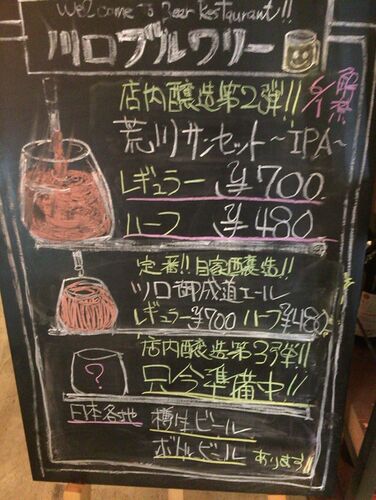 Welcome to Beer Restaurant!!
川口ブルワリー
店内醸造第2弾!!
6/1 解禁
荒川サンセット～IPA～
レギュラー ¥700
ハーフ ¥480
定番!!自家醸造!!
川口御成道エール
レギュラー¥700 ハーフ¥480
店内醸造第3弾!!
?
只今準備中!!
日本各地 樽生ビール
ボトルビール あります!!